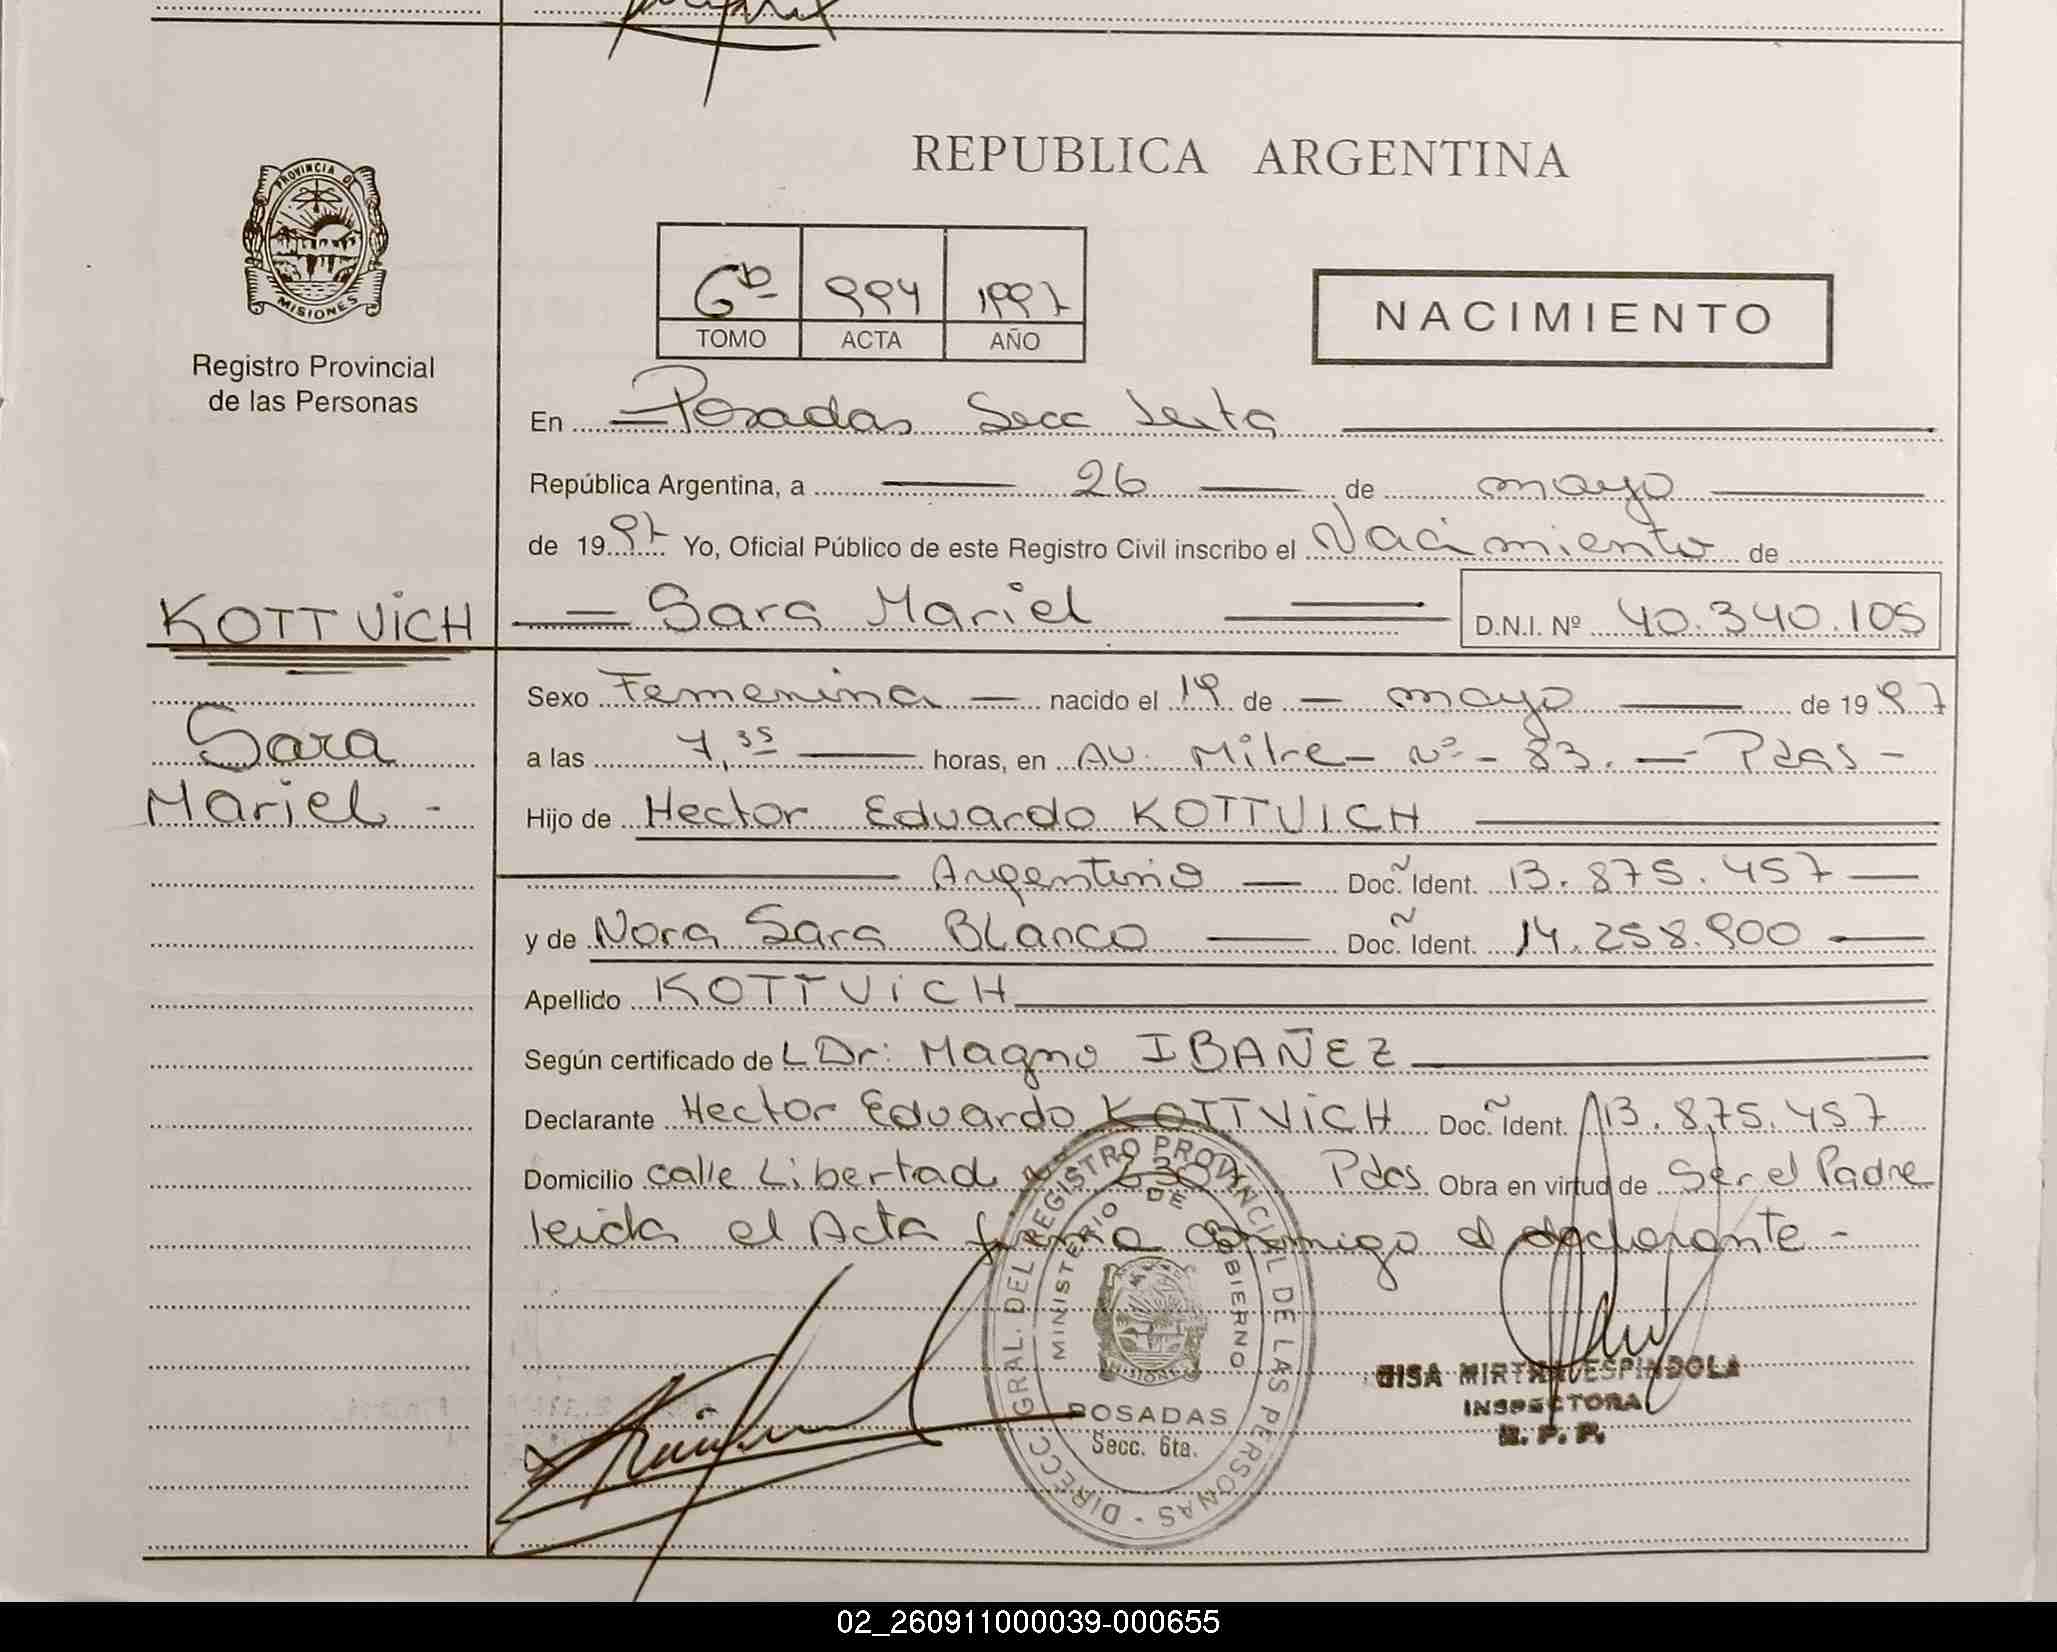 REPUBLICA ARGENTINA
PROVINCIA DE
MISIONES
Registro Provincial
de las Personas
6º 994 1997
TOMO ACTA AÑO
NACIMIENTO
En Posadas Secc Sexta
República Argentina, a 26 de mayo
de 1997 Yo, Oficial Público de este Registro Civil inscribo el Nacimiento de
KOTTVICH
Sara Mariel D.N.I. Nº 40.340.105
Sexo Femenina nacido el 19 de mayo de 1997
Sara
a las 7,35 horas, en AV. Mitre - Nº - 83. - Pdas -
Mariel -
Hijo de Hector Eduardo KOTTVICH
Argentino Doc. Ident. 13.875.457
y de Nora Sara BLanco Doc. Ident. 14.258.900
Apellido KOTTVICH
Según certificado de L Dr: Magno IBAÑEZ
Declarante Hector Eduardo KOTTVICH Doc. Ident. 13.875.457
Domicilio calle Libertad Nº Pdas Obra en virtud de Ser el Padre
leida el Acta firma conmigo el declarante -
DIRECC. GRAL. DEL REGISTRO PROVINCIAL DE LAS PERSONAS -
MINISTERIO DE GOBIERNO
MISIONES
POSADAS
Secc. 6ta.
MIRTHA ESPINDOLA
INSPECTORA
R. P. P.
02_260911000039-000655